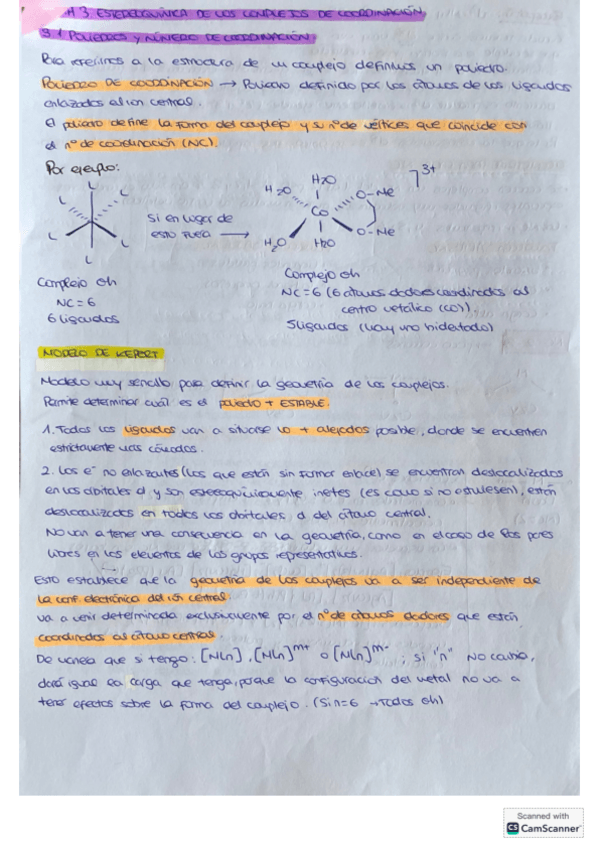 3. ESTEREOQUÍMICA DE LOS COMPLEJOS DE COORDINACIÓN
3.1 POLIEDROS Y NÚMERO DE COORDINACIÓN
Para referirnos a la estructura de un complejo definimos un poliedro.
POLIEDRO DE COORDINACIÓN → Poliedro definido por los átomos de los ligandos
enlazados al ion central.
El poliedro define la forma del complejo y su nº de vértices que coincide con
el nº de coordinación (NC).
Por ejemplo:
L
L
L
L
L
L
Complejo Oh
NC = 6
6 ligandos
Si en lugar de
esto fuera →
H2O
H2O
Co
O-Me
O-Me
H2O
H2O
3+
Complejo Oh
NC = 6 (6 átomos dadores coordinados al
centro metálico (Co)).
5 ligandos (hay uno bidentado)
MODELO DE KEPERT
Modelo muy sencillo para definir la geometría de los complejos.
Permite determinar cuál es el poliedro + ESTABLE.
1. Todos los ligandos van a situarse lo + alejados posible, donde se encuentren
estéricamente más cómodos.
2. Los e- no enlazantes (los que están sin formar enlace) se encuentran deslocalizados
en los orbitales d y son estereoquímicamente inertes (es como si no estuviesen), están
deslocalizados en todos los orbitales d del átomo central.
No van a tener una consecuencia en la geometría, como en el caso de los pares
libres en los elementos de los grupos representativos.
Esto establece que la geometría de los complejos va a ser independiente de
la conf. electrónica del ión central.
Va a venir determinada exclusivamente por el nº de átomos dadores que están
coordinados al átomo central.
De manera que si tengo: [MLn], [MLn]m+ o [MLn]m- ; si "n" no cambia,
dará igual la carga que tenga, porque la configuración del metal no va a
tener efectos sobre la forma del complejo. (Si n=6 → Todos Oh)
Scanned with
CS CamScanner